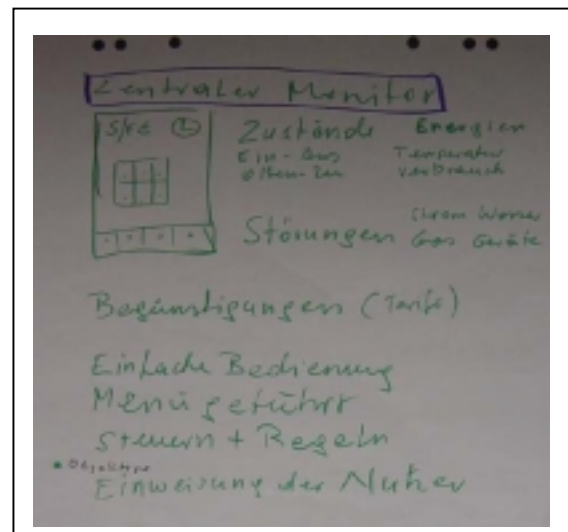 Zentraler Monitor
Zustände Energien
Ein-Aus Temperatur
Offen-Zu verbrauch
Störungen Strom Wasser
Gas Geräte
Begünstigungen (Tarife)
Einfache Bedienung
Menü geführt
Steuern + Regeln
Einweisung der Nutzer